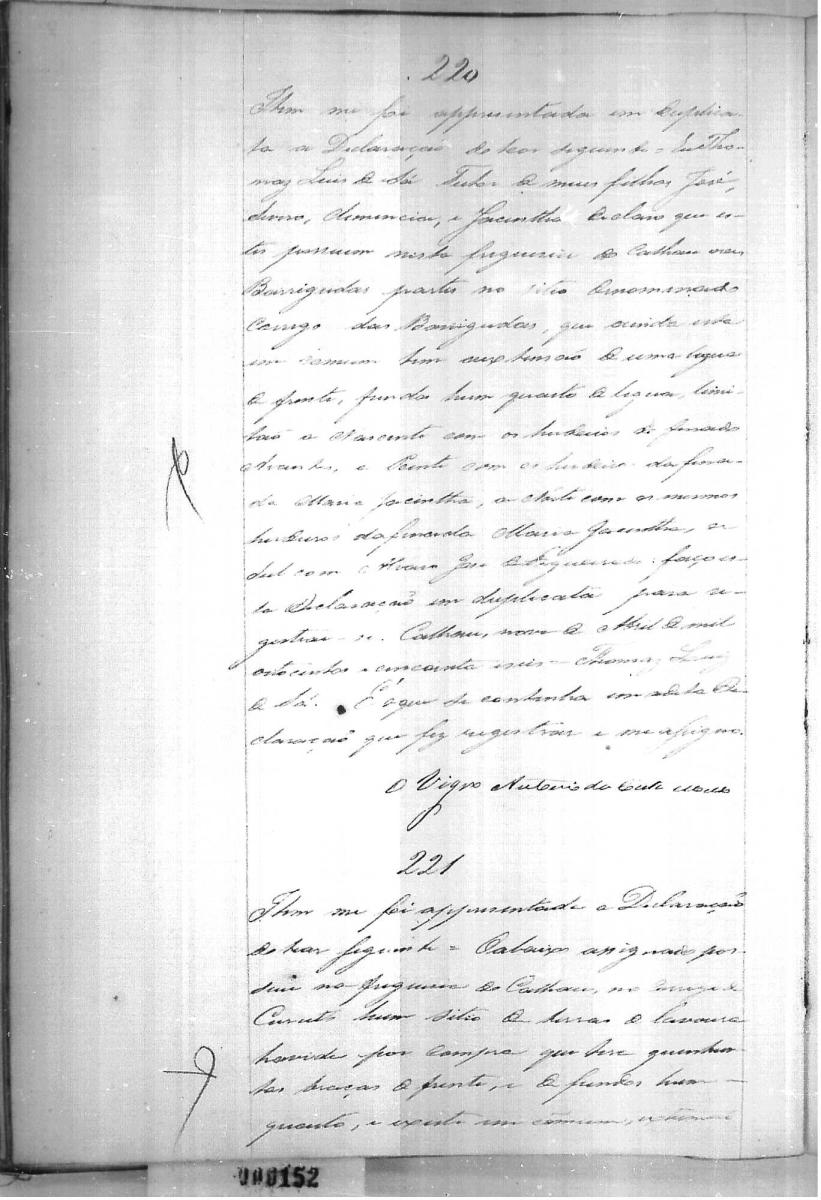 220
Item me foi appresentada em duplica-
ta a Declaração do teor seguinte = Eu Tho-
maz Luis de Sá Tutor de meus filhos José,
e Jacintha declaro que es-
tes possuem nesta freguesia do Calhau
Barrigudas partes no sitio denominado
Corrego das Barrigudas, que ainda esta
em comum tem a extensão de uma legua
de frente, fundos hum quarto de legua, limi-
tão a Nascente com os herdeiros do finado
e Poente com os herdeiros da fina-
da Maria Jacintha, a Norte com os mesmos
herdeiros da finada Maria Jacintha, e
Sul com Alvaro José de Figueiredo: faço es-
ta Declaração em duplicata para re-
gestrar-se. Calhau, nove de Abril de mil
oitocentos e cincoenta e seis = Thomaz Luiz
de Sá. É o que se continha em a dita De-
claração que fiz registrar e me assigno.
O Vigro Antonio da Costa
221
Item me foi appresentada a Declaração
do teor seguinte = O abaixo assignado pos-
sue na freguesia do Calhau, no
hum sitio de terras de lavoura
havido por compra que tera quinhen-
tas braças de frente, e de fundos hum
quarto, e existe em cômum,
000152